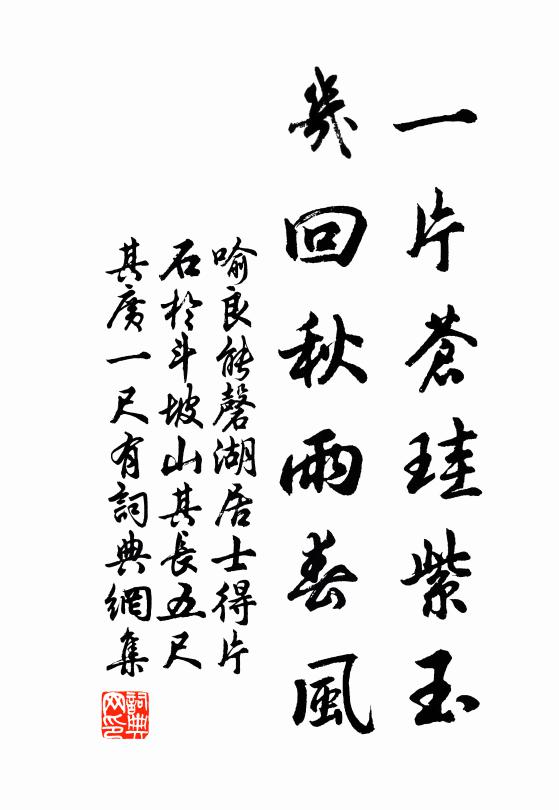 一片蒼珪紫玉
幾回秋雨春風
喻良能磬湖居士得片
石於斗坡山其長五尺
其廣一尺有詞典網集
詞典網印